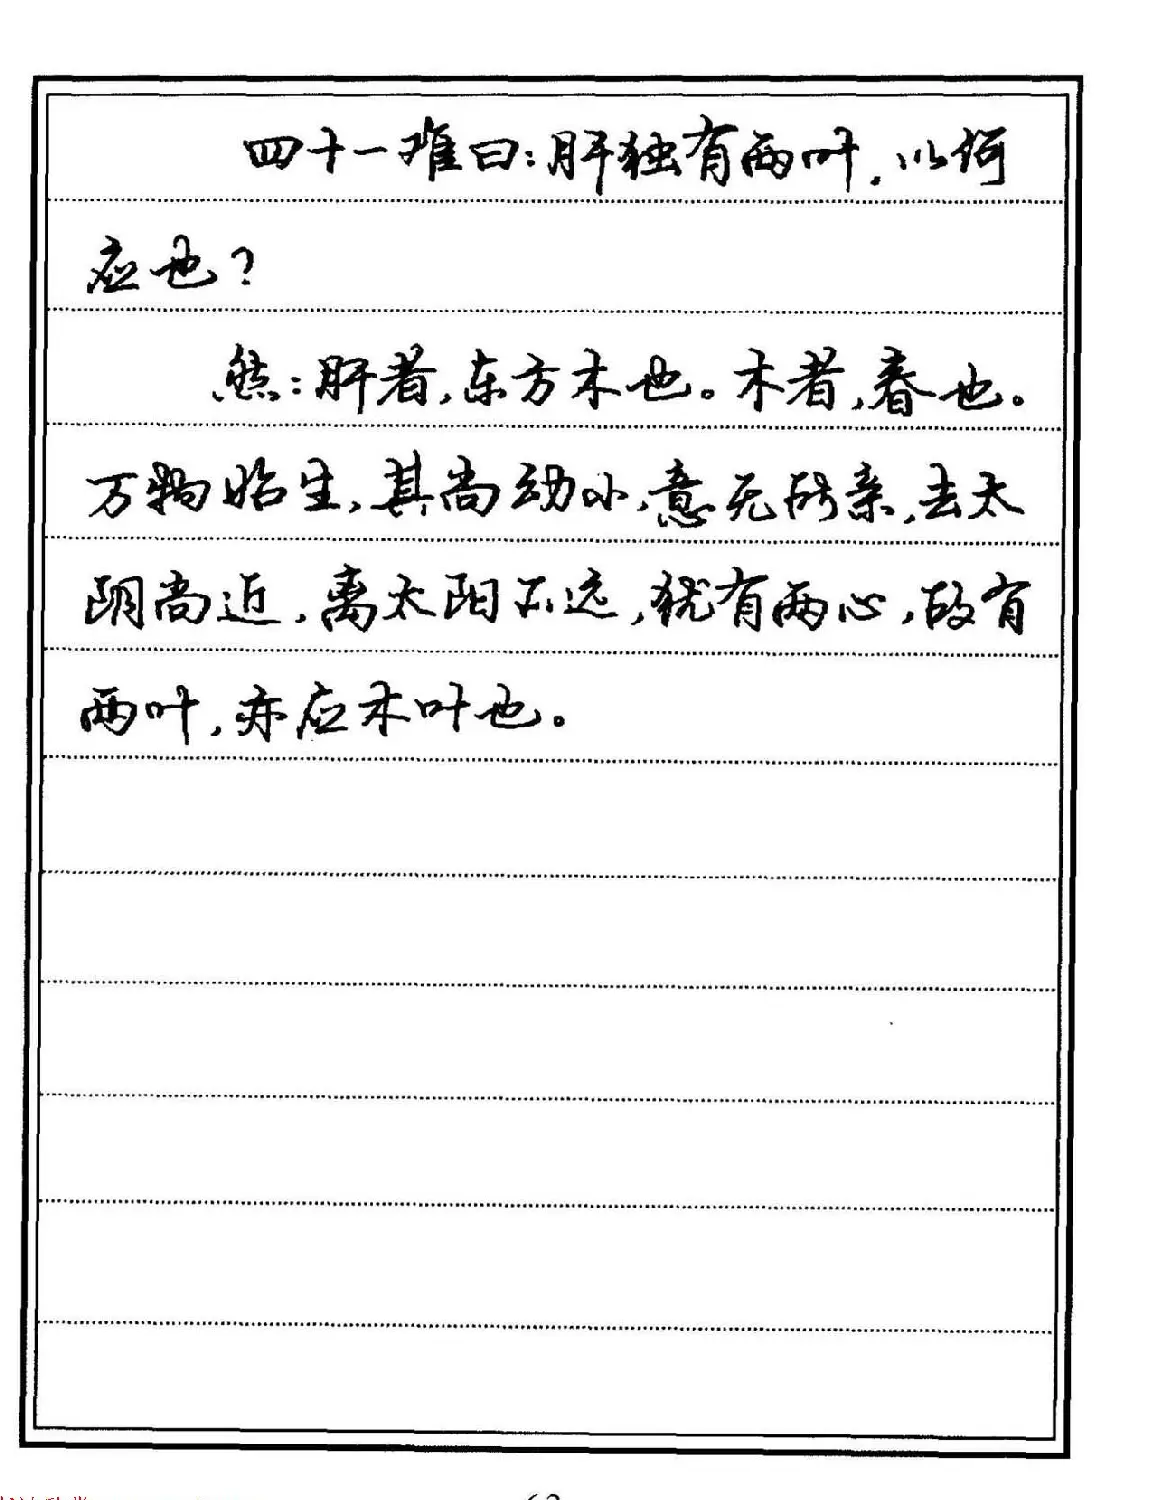 四十一难曰:肝独有两叶,以何
应也?
然:肝者,东方木也。木者,春也。
万物始生,其尚幼小,意无所亲,去太
阴尚近,离太阳不远,犹有两心,故有
两叶,亦应木叶也。